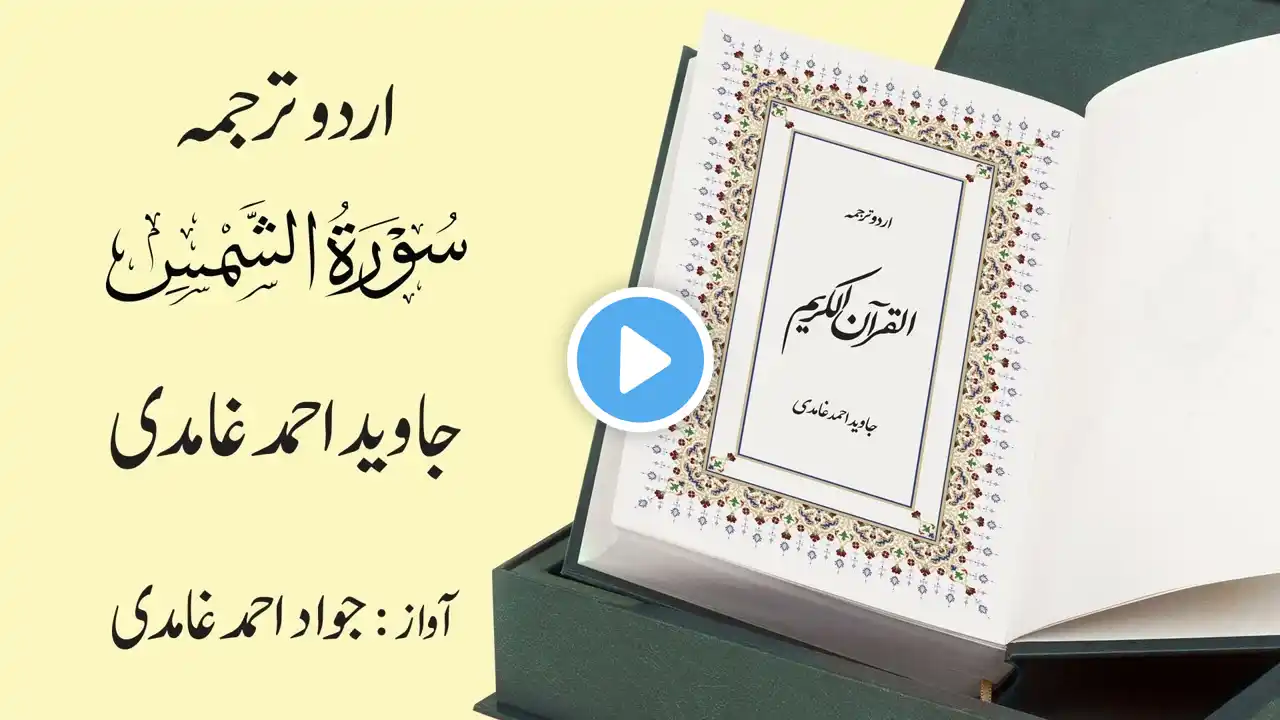 اردو ترجمہ
سُوْرَةُ الشَّمْسِ
جاوید احمد غامدی
آواز : جواد احمد غامدی
اردو ترجمہ
القرآن الکریم
جاوید احمد غامدی